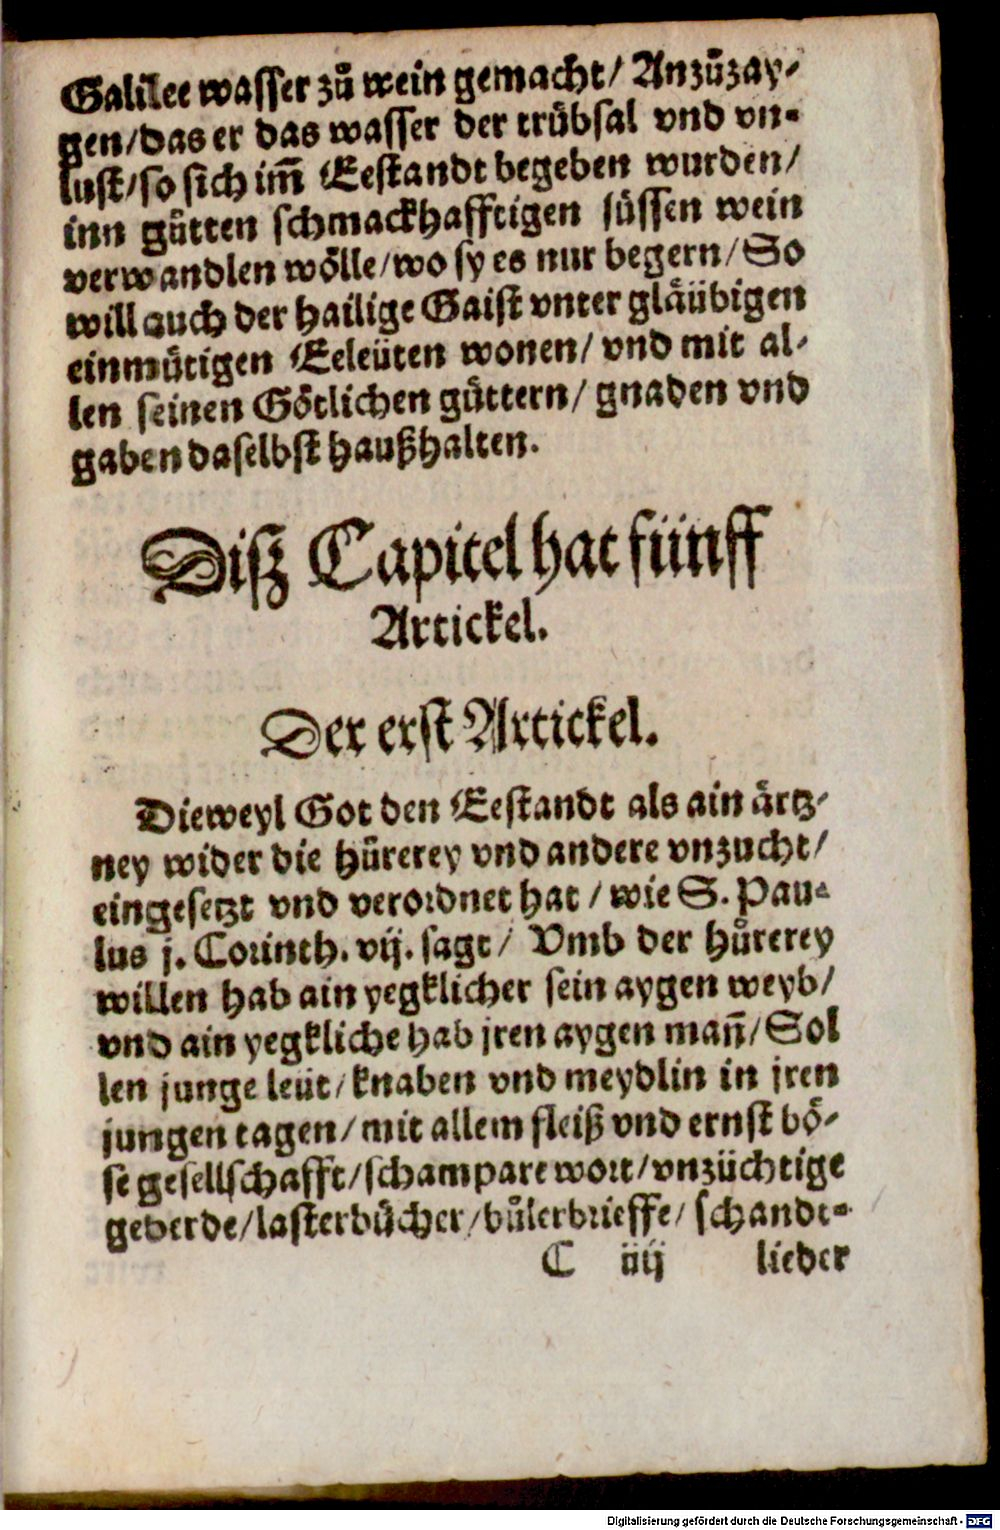 Galilee wasser zů wein gemacht/ Anzůzay-
gen/das er das wasser der trübsal vnd vn-
lust/so sich im̃ Eestandt begeben wurden/
inn gůtten schmackhafftigen süssen wein
verwandlen wölle/wo sy es nur begern/So
will auch der hailige Gaist vnter gläübigen
einmůtigen Eeleüten wonen/ vnd mit al-
len seinen Götlichen gůttern/ gnaden vnd
gaben daselbst haußhalten.
Disz Capitel hat fünff
Artickel.
Der erst Artickel.
Dieweyl Got den Eestandt als ain ärtz-
ney wider die hůrerey vnd andere vnzucht/
eingesetzt vnd verordnet hat / wie S. Pau-
lus j. Corinth. vij. sagt/ Vmb der hůrerey
willen hab ain yegklicher sein aygen weyb/
vnd ain yegkliche hab jren aygen man̄/Sol
len junge leüt/knaben vnd meydlin in jren
jungen tagen/mit allem fleiß vnd ernst bö-
se gesellschafft/schampare wort/vnzüchtige
geberde/lasterbücher/bůlerbrieffe/ schandt-
C iiij lieder
Digitalisierung gefördert durch die Deutsche Forschungsgemeinschaft - DFG